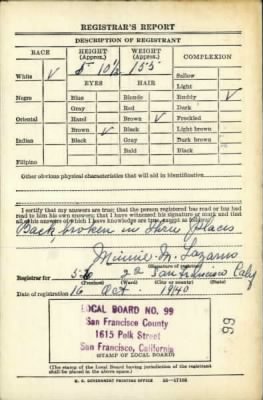 REGISTRAR'S REPORT
DESCRIPTION OF REGISTRANT
RACE HEIGHT (Approx.) WEIGHT (Approx.) COMPLEXION
5' 10½ 155
White ✓ Sallow
EYES HAIR Light
Negro Blue Blonde Ruddy ✓
Gray Red Dark
Oriental Hazel Brown ✓ Freckled
Brown ✓ Black Light brown
Indian Black Gray Dark brown
Bald Black
Filipino
Other obvious physical characteristics that will aid in identification
I certify that my answers are true; that the person registered has read or has had
read to him his own answers; that I have witnessed his signature or mark and that
all of his answers of which I have knowledge are true, except as follows:
Back broken in three places
Minnie M. Lazarus
(Signature of registrar)
Registrar for 5-20 22 San Francisco Calif
Date of registration 16 Oct. 1940
LOCAL BOARD NO. 99
San Francisco County
1615 Polk Street
San Francisco, California
(STAMP OF LOCAL BOARD)
99
(The stamp of the Local Board having jurisdiction of the registrant
shall be placed in the above space.)
U. S. GOVERNMENT PRINTING OFFICE 16—17105